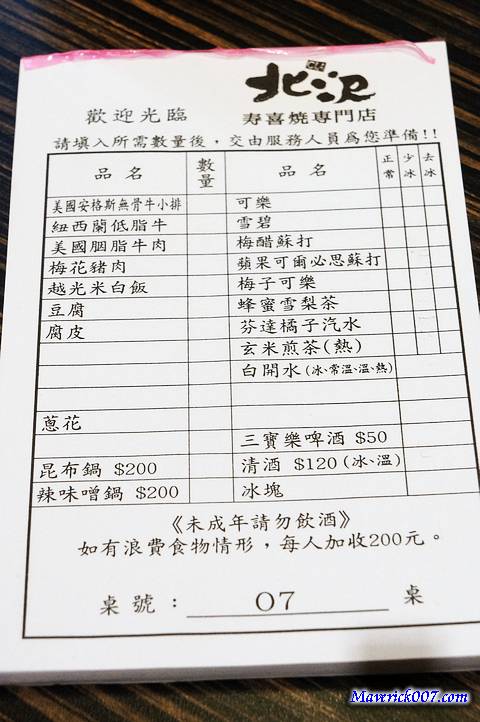 北沢
歡迎光臨 寿喜燒専門店
請填入所需數量後，交由服務人員為您準備!!
品名 數量 品名 正常 少冰 去冰
美國安格斯無骨牛小排 可樂
紐西蘭低脂牛 雪碧
美國胭脂牛肉 梅醋蘇打
梅花豬肉 蘋果可爾必思蘇打
越光米白飯 梅子可樂
豆腐 蜂蜜雪梨茶
腐皮 芬達橘子汽水
玄米煎茶(熱)
白開水(冰、常溫、溫、熱)
蔥花
三寶樂啤酒 $50
昆布鍋 $200 清酒 $120(冰、溫)
辣味噌鍋 $200 冰塊
《未成年請勿飲酒》
如有浪費食物情形，每人加收200元。
桌號： 07 桌
Maverick007.com